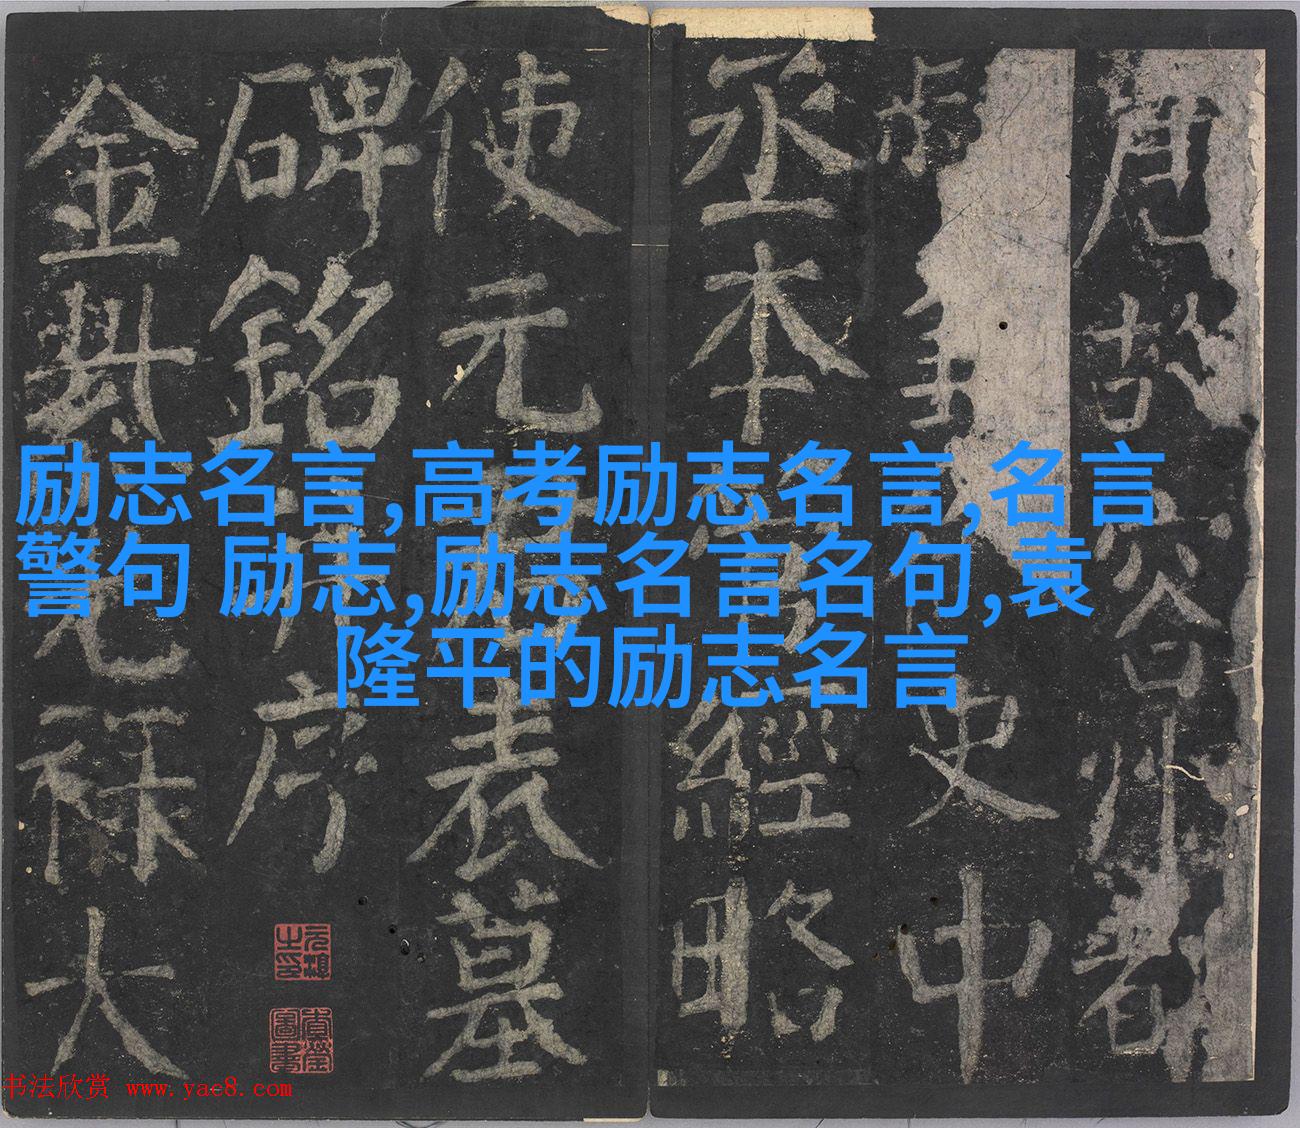 唐故容州都
史中
丞本經略
使元表墓
碑銘序
金祿大
励志名言,高考励志名言,名言
警句 励志,励志名言名句,袁
隆平的励志名言
书法欣赏 www.yac8.com